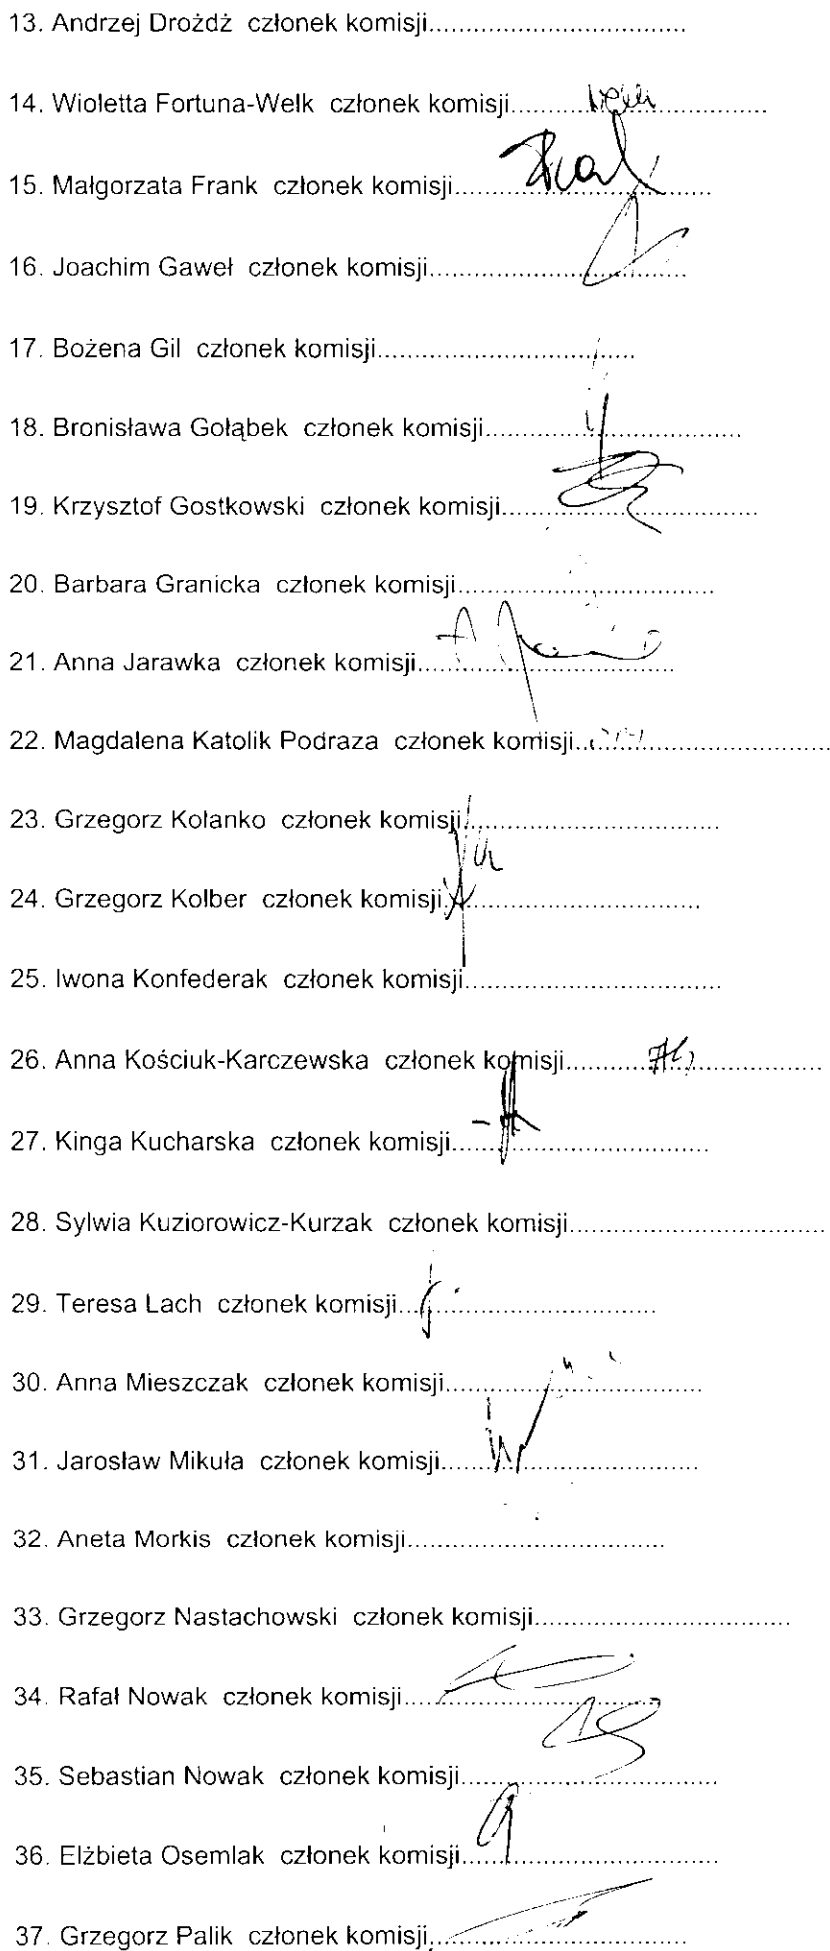 13. Andrzej Drożdż członek komisji..................................
14. Wioletta Fortuna-Welk członek komisji..................................
15. Małgorzata Frank członek komisji..................................
16. Joachim Gaweł członek komisji..................................
17. Bożena Gil członek komisji..................................
18. Bronisława Gołąbek członek komisji..................................
19. Krzysztof Gostkowski członek komisji..................................
20. Barbara Granicka członek komisji..................................
21. Anna Jarawka członek komisji..................................
22. Magdalena Katolik Podraza członek komisji..................................
23. Grzegorz Kolanko członek komisji..................................
24. Grzegorz Kolber członek komisji..................................
25. Iwona Konfederak członek komisji..................................
26. Anna Kościuk-Karczewska członek komisji..................................
27. Kinga Kucharska członek komisji..................................
28. Sylwia Kuziorowicz-Kurzak członek komisji..................................
29. Teresa Lach członek komisji..................................
30. Anna Mieszczak członek komisji..................................
31. Jarosław Mikuła członek komisji..................................
32. Aneta Morkis członek komisji..................................
33. Grzegorz Nastachowski członek komisji..................................
34. Rafał Nowak członek komisji..................................
35. Sebastian Nowak członek komisji..................................
36. Elżbieta Osemlak członek komisji..................................
37. Grzegorz Palik członek komisji..................................